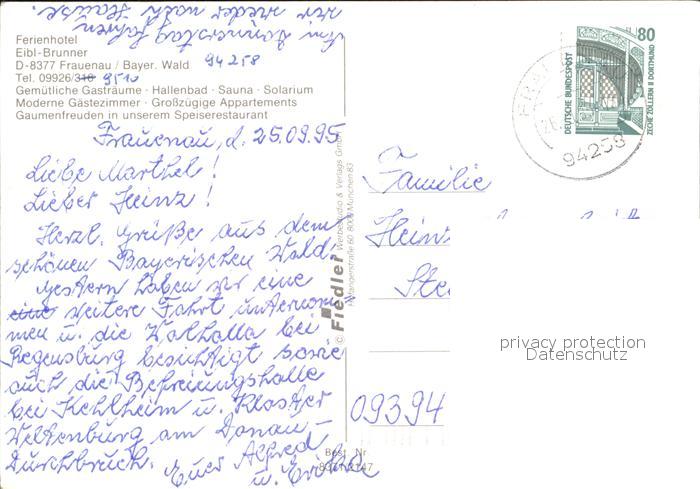 Ferienhotel
Eibl-Brunner
D-8377 Frauenau / Bayer. Wald 94258
Tel. 09926/316 9510
Gemütliche Gasträume · Hallenbad · Sauna · Solarium
Moderne Gästezimmer · Großzügige Appartements
Gaumenfreuden in unserem Speiserestaurant
Frauenau, d. 25.09.95
Liebe Marthel!
Lieber Heinz!
Herzl. Grüße aus dem
schönen Bayerischen Wald.
Gestern haben wir eine
eine weitere Fahrt unternom-
men u. die Walhalla bei
Regensburg besichtigt sowie
auch die Befreiungshalle
bei Kehlheim u. Kloster
Weltenburg am Donau-
Durchbruch.
Euer Alfred
u. Erika
Am Donnerstag fahren
wir wieder nach Hause.
© Fiedler Werbestudio & Verlags GmbH
8000 München 83
Best. Nr
DEUTSCHE BUNDESPOST
80
ZECHE ZOLLERN II DORTMUND
94258
Familie
Heinz
Ste
09394
privacy protection
Datenschutz